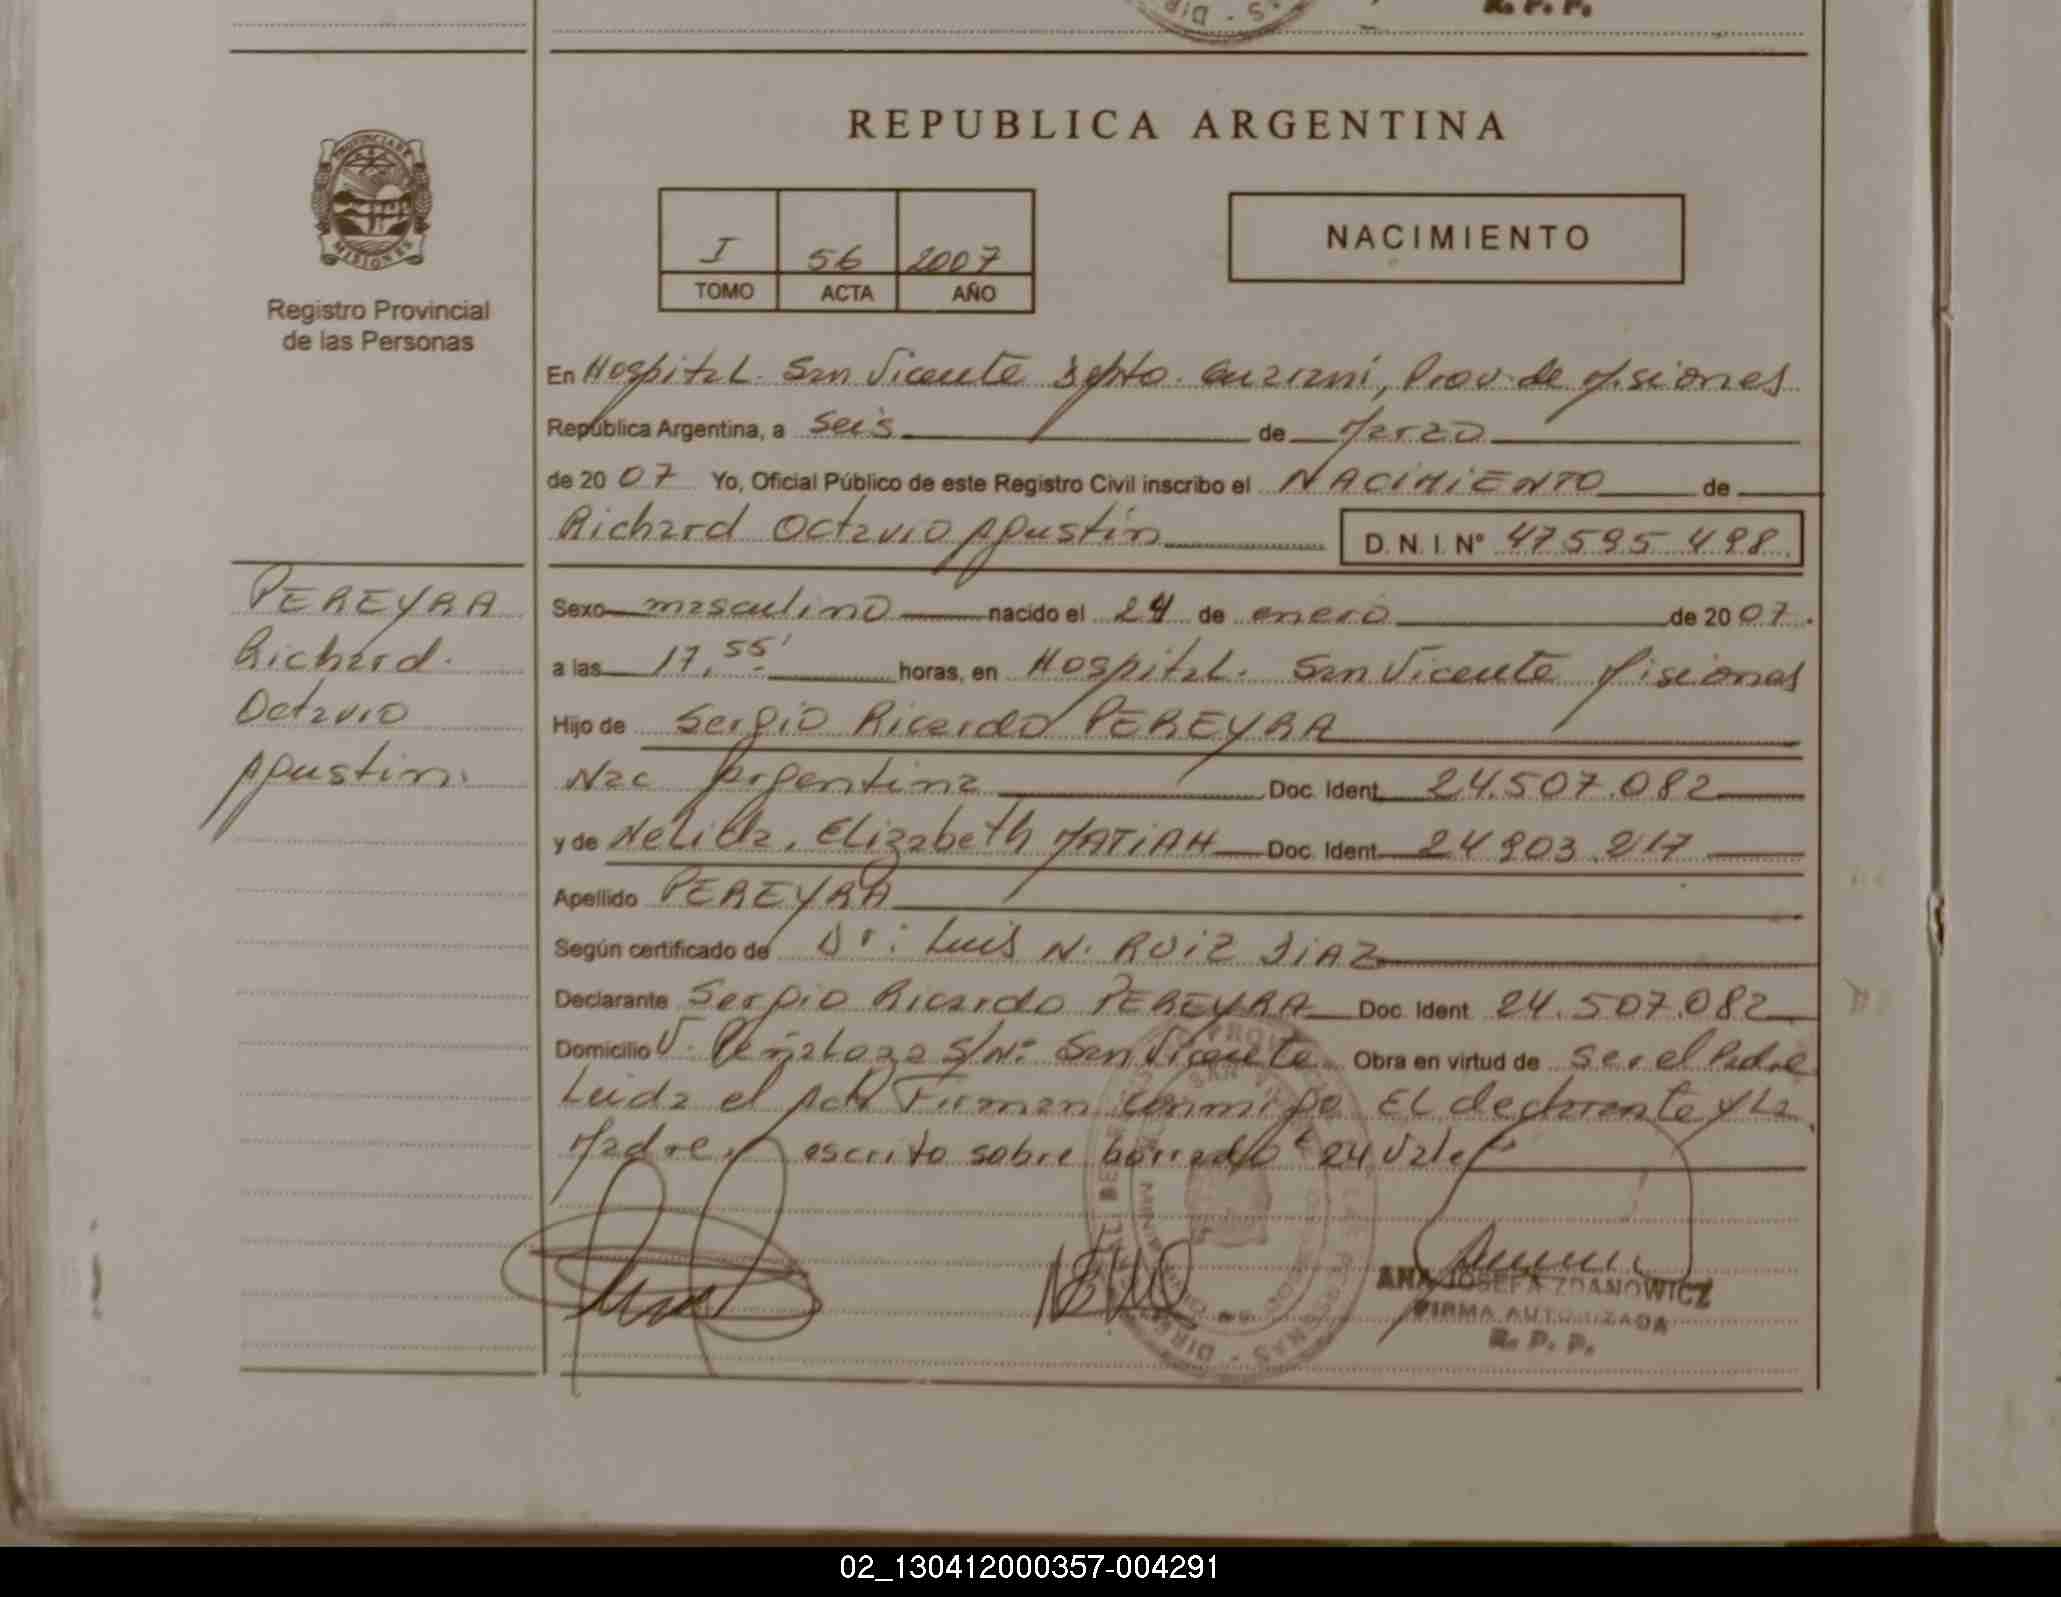 R. P. P.
REPUBLICA ARGENTINA
PROVINCIA DE
MISIONES
Registro Provincial
de las Personas
I 56 2007
TOMO ACTA AÑO
NACIMIENTO
En Hospital. San Vicente Dpto. Guarani, Prov. de Misiones
República Argentina, a seis de Marzo
de 2007 Yo, Oficial Público de este Registro Civil inscribo el NACIMIENTO de
Richard Octavio Agustin D. N. I. Nº 47595498
PEREYRA
Richard.
Octavio
Agustin.
Sexo masculino nacido el 24 de enero de 2007.
a las 17,55' horas, en Hospital. San Vicente Misiones
Hijo de Sergio Ricardo PEREYRA
Nac Argentina Doc. Ident. 24.507.082
y de Nelida, Elizabeth MATIAH Doc. Ident. 24 903 217
Apellido PEREYRA
Según certificado de Dr: Luis N. RUIZ DIAZ
Declarante Sergio Ricardo PEREYRA Doc. Ident. 24.507.082
Domicilio V. Peñaloza S/Nº San Vicente Obra en virtud de ser el Padre
Leida el Acta Firman conmigo EL declarante y La
Madre, escrito sobre borrado "24 Vale"
ANA JOSEFA ZDANOWICZ
FIRMA AUTORIZADA
R. P. P.
02_130412000357-004291